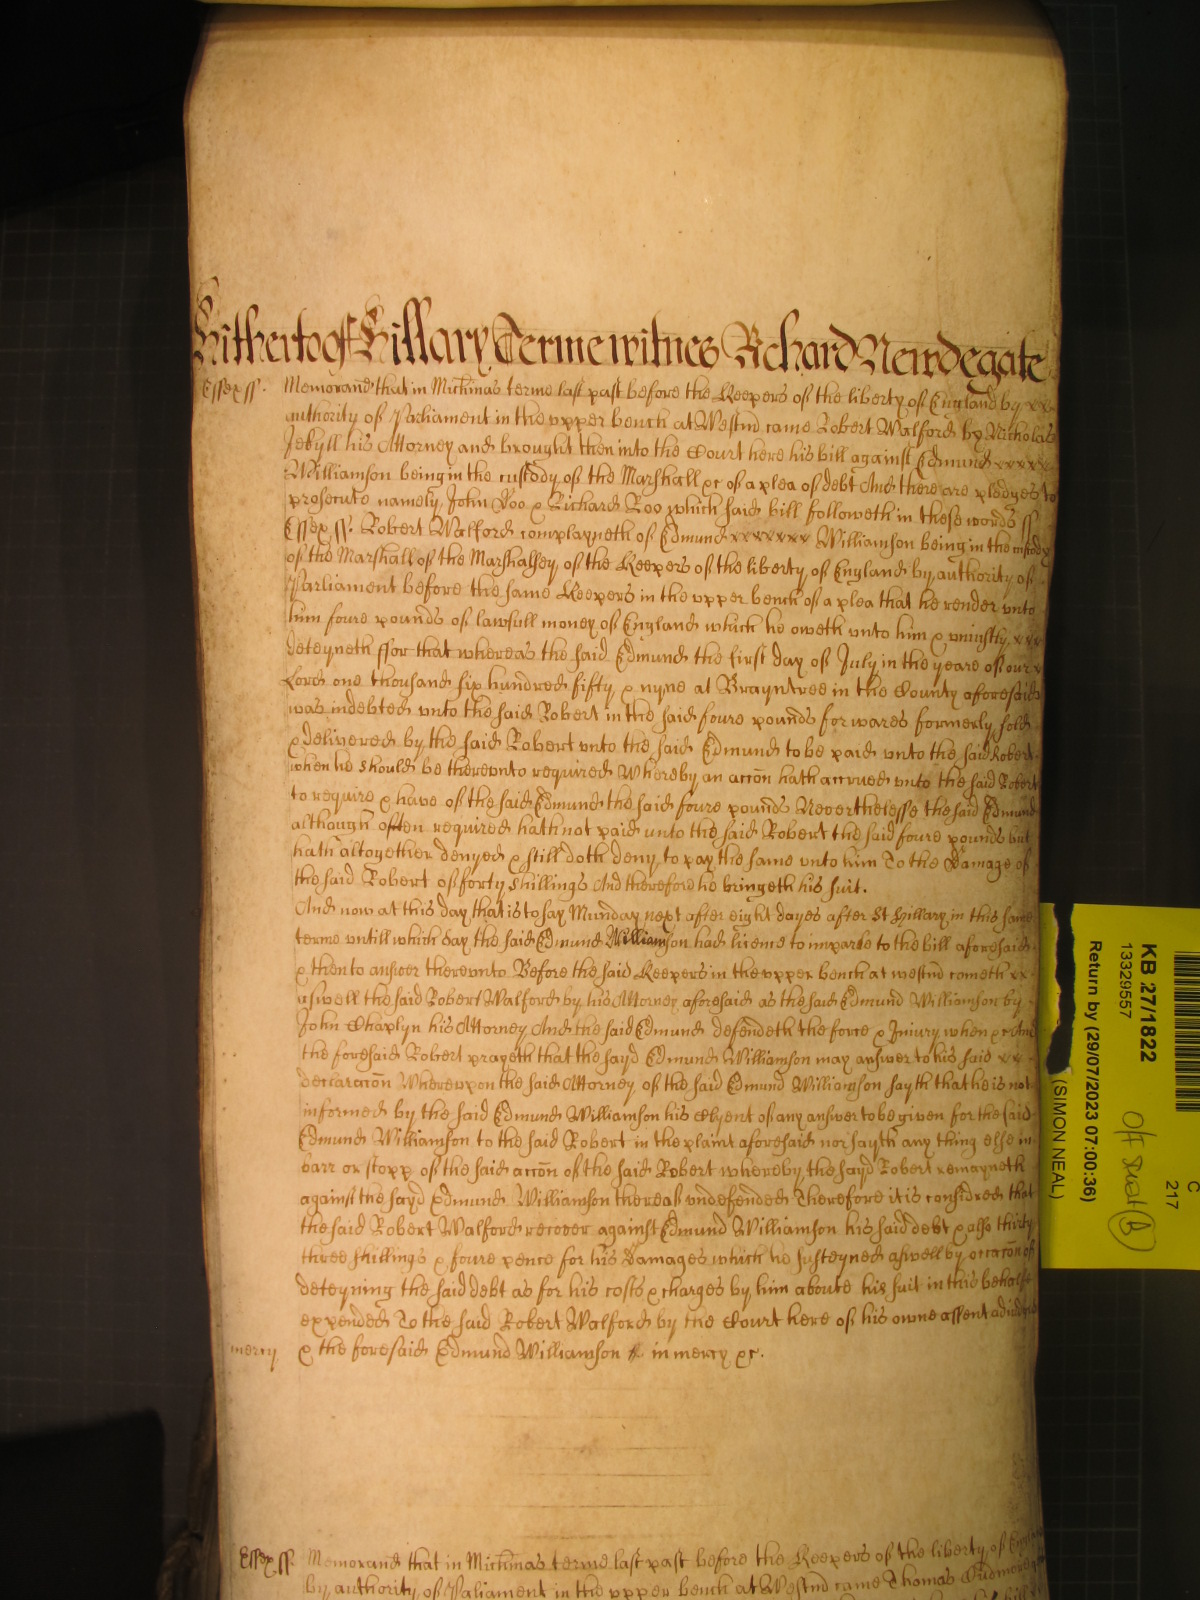 Hitherto of Hillary Terme witnes Richard Newdegate
Essex ss. Memorand that in Michmas terme last past before the Keepers of the liberty of England by
authority of Parliament in the vpper bench at Westm came Robert Walford by Nicholas
Jekyll his Attorney and brought then into the Court here his bill against Edmund
Williamson being in the custody of the Marshall &c of a plea of debt And there are pledges to
prosecute namely John Doo & Richard Roo which said bill followeth in these words ss
Essex ss. Robert Walford complayneth of Edmund Williamson being in the custody
of the Marshall of the Marshalsey of the Keepers of the liberty of England by authority of
Parliament before the same Keepers in the vpper bench of a plea that he render vnto
him foure pounds of lawfull money of England which he oweth vnto him & vniustly
deteyneth ffor that whereas the said Edmund the first day of July in the yeare of our
Lord one thousand six hundred fifty & nyne at Brayntree in the County aforesaid
was indebted vnto the said Robert in the said foure pounds for wares formerly sold
& delivered by the said Robert vnto the said Edmund to be paid vnto the said Robert
when he should be therevnto required Whereby an accon hath accrued vnto the said Robert
to require & have of the said Edmund the said foure pounds Neverthelesse the said Edmund
although often required hath not paid unto the said Robert the said foure pounds but
hath altogether denyed & still doth deny to pay the same vnto him To the Damage of
the said Robert of forty shillings And therefore he bringeth his suit.
And now at this day that is to say Munday next after eight dayes after St Hillary in this same
terme vntill which day the said Edmund Williamson had licence to imparle to the bill aforesaid
& then to answer therevnto Before the said Keepers in the vpper bench at westm cometh
aswell the said Robert Walford by his Attorney aforesaid as the said Edmund Williamson by
John Chaplyn his Attorney And the said Edmund defendeth the force & Iniury when &c And
the foresaid Robert prayeth that the sayd Edmund Williamson may answer to his said
declaracon Wherevpon the said Attorney of the said Edmund Williamson sayth that he is not
informed by the said Edmund Williamson his Clyent of any answer to be given for the said
Edmund Williamson to the said Robert in the plaint aforesaid nor sayth any thing else in
barr or stopp of the said accon of the said Robert whereby the sayd Robert remayneth
against the sayd Edmund Williamson thereof vndefended Therefore it is considred that
the said Robert Walford recover against Edmund Williamson his said debt & also thirty
three shillings & foure pence for his Damages which he susteyned aswell by occacon of
deteyning the said debt as for his costs & charges by him aboute his suit in this behalfe
expended To the said Robert Walford by the Court here of his owne assent adiudged
mercy & the foresaid Edmund Williamson in mercy &c.
Essex ss. Memorand that in Michmas terme last past before the Keepers of the liberty of England
by authority of Parliament in the vpper bench at Westm came Thomas
KB 27/1822
13329557
Return by (29/07/2023 07:00:36)
(SIMON NEAL)
C
217